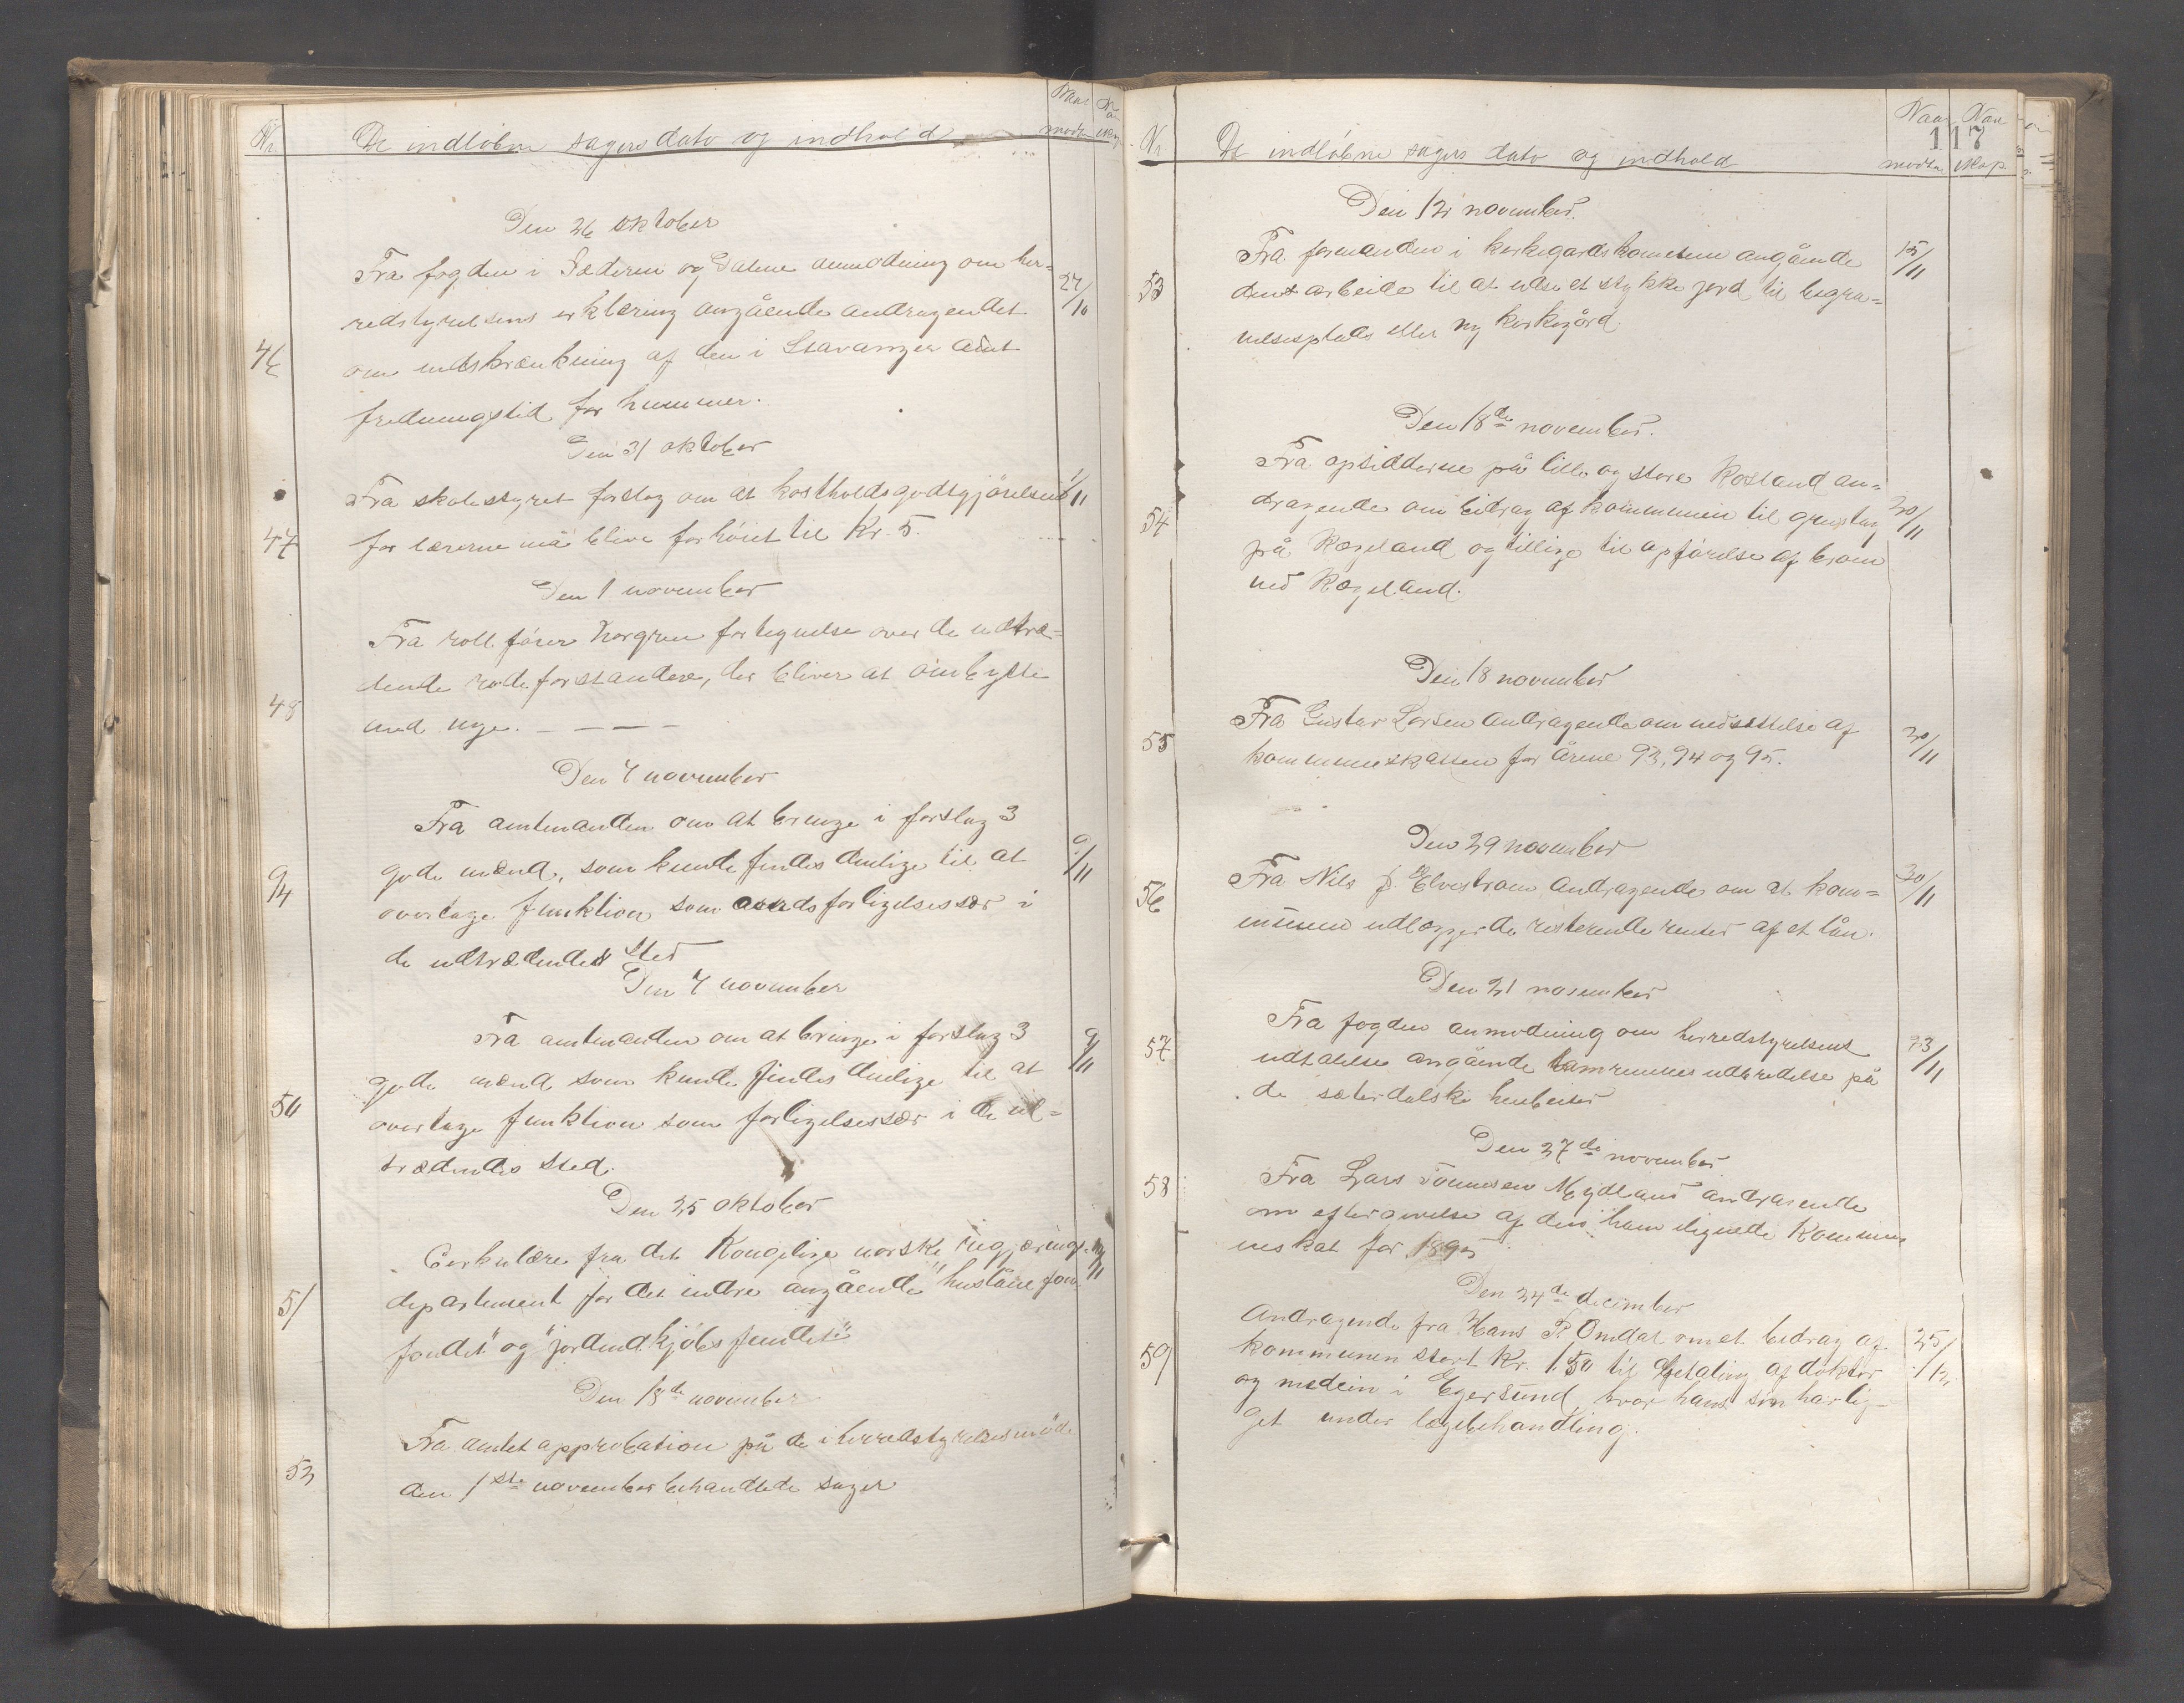 Nr. De indløbne sagers dato og indhold
Den 26 oktober
Fra fogden i Jæderen og Dalene anmodning om her- 27/10
redstyrelsens erklæring angående andragendet
46 om indskrænkning af den i Stavanger amt
fredningstid for hummer.
Den 31 oktober
Fra skolestyret forslag om at kostholdsgodtgjörelsen 1/11
47 for lærerne må blive forhöiet til Kr. 5.
Den 1 november
Fra rollefører Norgren fortegnelse over de udtræ=
dende rodeforstandere, der bliver at ombytte
48 med nye. — — — —
Den 7 november
Fra amtmanden om at bringe i forslag 3
gode mænd, som kunde findes duelige til at 9/11
overtage funktion som forligelsessær i
de udtrædendes sted
Den 7 november
Fra amtmanden om at bringe i forslag 3 9/11
gode mænd som kunde findes duelige til at
50 overtage funktion som forligelsessær i de ud=
trædendes sted.
Den 25 oktober
Cirkulære fra det Kongelige norske regjerings
51 departement for det indre angående "huslåne
fondet" og "jordindkjöbsfondet"
Den 18de november
Fra amtet approbation på de i herredstyrelsesmöde
52 den 1ste november behandlede sager
117
Nr. De indløbne sagers dato og indhold
Den 12 november.
Fra formanden i kirkegårdskomiteen angående 15/11
53 dens arbeide til at udse et stykke jord til begra=
velsesplads eller ny kirkegård.
Den 18de november.
Fra opsidderne på lille og store Rosland an=
54 dragende om bidrag af kommunen til grustag 20/11
på Rægeland og tillige til opförelse af broen
ved Rægeland.
Den 18 november
Fra Gustav Larsen andragende om nedsættelse af
55 kommuneskatten for årene 93, 94 og 95. 20/11
Den 29 november
Fra Nils J. Elvestrøm andragende om at kom= 30/11
56 munen udlægger de resterende renter af et lån.
Den 21 november
Fra fogden anmodning om herredstyrelsens 23/11
57 udtalelse angående udbredelse på
de sæterdalske heubeiter
Den 27de november
58 Fra Lars Tönnesen Mydland andragende
om eftergivelse af den ham ilignede kommu
neskat for 1895
Den 24de december
Andragende fra Hans P. Omdal om et bidrag af 25/12
59 kommunen stort Kr. 150 til betaling af doktor
og medicin i Egersund, hvor hans sön har lig-
get under lægebehandling.